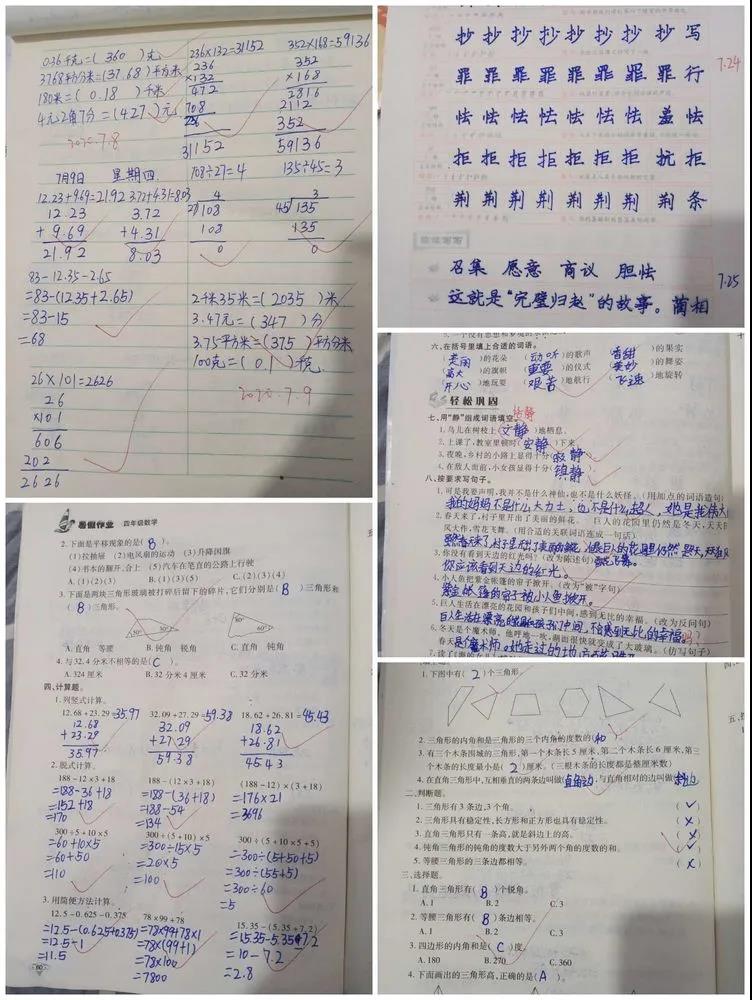 0.36千克=( 360 )元
3768平方分米=(37.68)平方米
180米=( 0.18 )千米
4元2角7分=(427)元
2020.7.8
236×132=31152
236
×132
472
708
236
31152
352×168=59136
352
×168
2816
2112
352
59136
7月9日 星期四
12.23+9.69=21.92
12.23
+ 9.69
21.92
3.72+4.31=8.03
3.72
+4.31
8.03
108÷27=4
4
108
108
0
135÷45=3
3
45 135
135
0
83-12.35-2.65
=83-(12.35+2.65)
=83-15
=68
2千米35米=( 2035 )米
3.47元=( 347 )分
3.75平方米=(375 )平方分米
100克=( 0.1 )千克
2020.7.9
26×101=2626
26
×101
606
202
2626
抄抄抄抄抄抄抄写
罪罪罪罪罪罪罪行
怯怯怯怯怯怯羞怯
拒拒拒拒拒拒抗拒
荆荆荆荆荆荆荆条
7.24
召集 愿意 商议 胆怯
这就是“完璧归赵”的故事。蔺相
7.25
六、在括号里填上合适的词语。
(美丽)的花朵 (动听)的歌声 (香甜)的果实
(高大)的旗帜 (重要)的仪式 (美妙)的舞姿
(开心)地玩耍 (艰苦)地航行 (飞速)地旋转
轻松巩固
七、用“静”组成词语填空。
1.鸟儿在树枝上(文静)地栖息。
2.上课了,教室里顿时(安静)下来。
3.夜晚,乡村的小路上显得十分(寂静)
4.在敌人面前,小女孩显得十分(镇静)
八、按要求写句子。
1.可是我要声明,我并不是什么神仙,也不是什么妖怪。(用加点的词语造句)
我的妈妈不是什么大力士,也不是什么超人,她是我伟大
2.春天来了,村子里开出了美丽的鲜花。 巨人的花园里仍然是冬天,天天
风大作,雪花飞舞。(用合适的关联词语连成一句话)
3.你没有看到天边的红光吗?(改为陈述句)
你应该看到天边的红光。
4.小人鱼把紫金帐篷的帘子掀开。(改为“被”字句)
紫金帐篷的帘子被小人鱼掀开。
5.巨人生活在漂亮的花园和孩子们中间,感到无比的幸福。(改为反问句)
6.冬天是个魔术师,他呼地一吹,湖面很快就变成了大玻璃。(仿写句子)
暑假作业 四年级数学
2.下面是平移现象的是( B )。
(1)拉抽屉 (2)电风扇的运动 (3)升降国旗
(4)书本的翻开、合上 (5)汽车在笔直的公路上行驶
A.(1)(2)(3) B.(1)(3)(5) C.(2)(3)(4)
3.下面是两块三角形玻璃被打碎后留下的碎片,它们分别是( B )三角形和
( B )三角形。
A.直角 等腰 B.钝角 锐角 C.直角 钝角
4.与32.4分米不相等的是( C )。
A.324厘米 B.32分米4厘米 C.32分米
四、计算题。
1.列竖式计算。
12.68+23.29=35.97 32.09+27.29=59.38 18.62+26.81=45.43
12.68 32.09 18.62
+23.29 +27.29 +26.81
35.97 59.38 45.43
2.脱式计算。
188-12×3+18 188-(12×3+18) (188-12)×(3+18)
=188-36+18 =188-(36+18) =176×21
=152+18 =188-54 =3696
=170 =134
300÷5+10×5 300÷(5+10)×5 300÷(5+10×5+5)
=60+10×5 =300÷15×5 =300÷(5+50+5)
=60+50 =20×5 =300÷(55+5)
=110 =100 =300÷60
=5
3.用简便方法计算。
12.5-0.625-0.375 78×99+78 15.35-(5.35+7.2)
=12.5-(0.625+0.375) =78×99+78×1 =15.35-5.35-7.2
=12.5-1 =78×(99+1) =10-7.2
=11.5 =78×100 =2.8
=7800
80
1.下图中有( 2 )个三角形。
2.三角形的内角和是三角形的三个内角的度数的(和)
3.有三个木条围城的三角形,第一个木条长5厘米,第二个木条长6厘米,第三
个木条的长度最小是( 2 )厘米。(三根木条的长度都是整厘米数)
4.在直角三角形中,互相垂直的两条边叫做(直角边),与直角相对的边叫做(斜边)
二、判断题。
1.三角形有3条边,3个角。 (✓)
2.三角形具有稳定性,长方形和正方形也具有稳定性。 (×)
3.直角三角形只有一条高,就是斜边上的高。 (×)
4.钝角三角形的钝角的度数大于另外两个角的度数的和。 (✓)
5.等腰三角形的三条边都相等。 (×)
三、选择题。
1.直角三角形有( B )个锐角。
A.1 B.2 C.3
2.等腰三角形有( B )条边相等。
A.1 B.2 C.3
3.四边形的内角和是( C )度。
A.180 B.270 C.360
4.下面画出的三角形高,正确的是( A )。